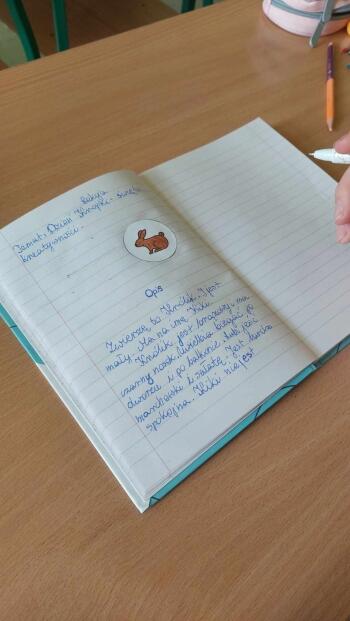 Lekcja
Temat: Dzień Kropki - święto
kreatywności.
Opis
Zwierzę to królik. Jest
Ma na imię Kiki
mały. Królik jest brązowy, ma
czarny nosek. Uwielbia biegać po
dworze i po balkonie. Lubi jeść
marchewki i sałatę. Jest bardzo
spokojna. Kiki nie jest